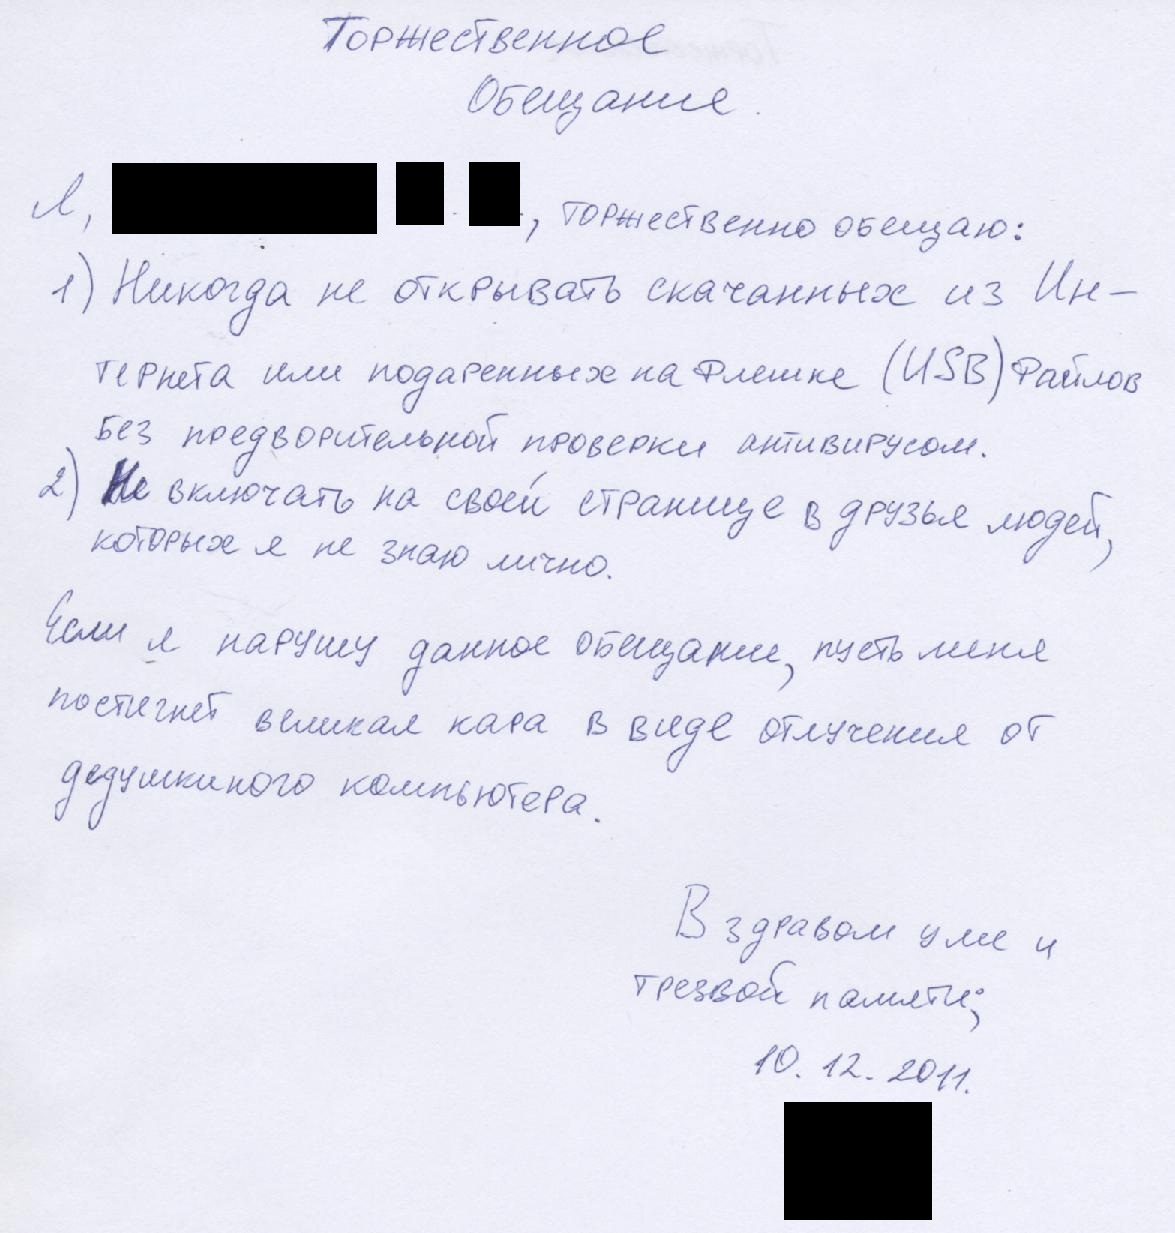 Торжественное
Обещание.
Я, , торжественно обещаю:
1) Никогда не открывать скачанных из Ин-
тернета или подаренных на Флешке (USB) Файлов
без предворительной проверки антивирусом.
2) Не включать на своей странице в друзья людей,
которых я не знаю лично.
Если я нарушу данное обещание, пусть меня
постигнет великая кара в виде отлучения от
дедушкиного компьютера.
В здравом уме и
трезвой памяти;
10.12.2011.